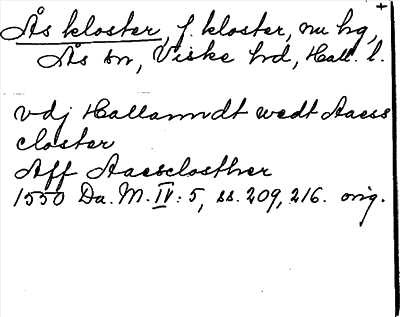 Ås kloster, f. kloster, nu hg,
Ås sn, Viske hd, Hall. l.
vdj Hallanndt wedt Aaess
closter
Aff Aaesclosther
1550 Da. M. IV: 5, ss. 209, 216. orig.